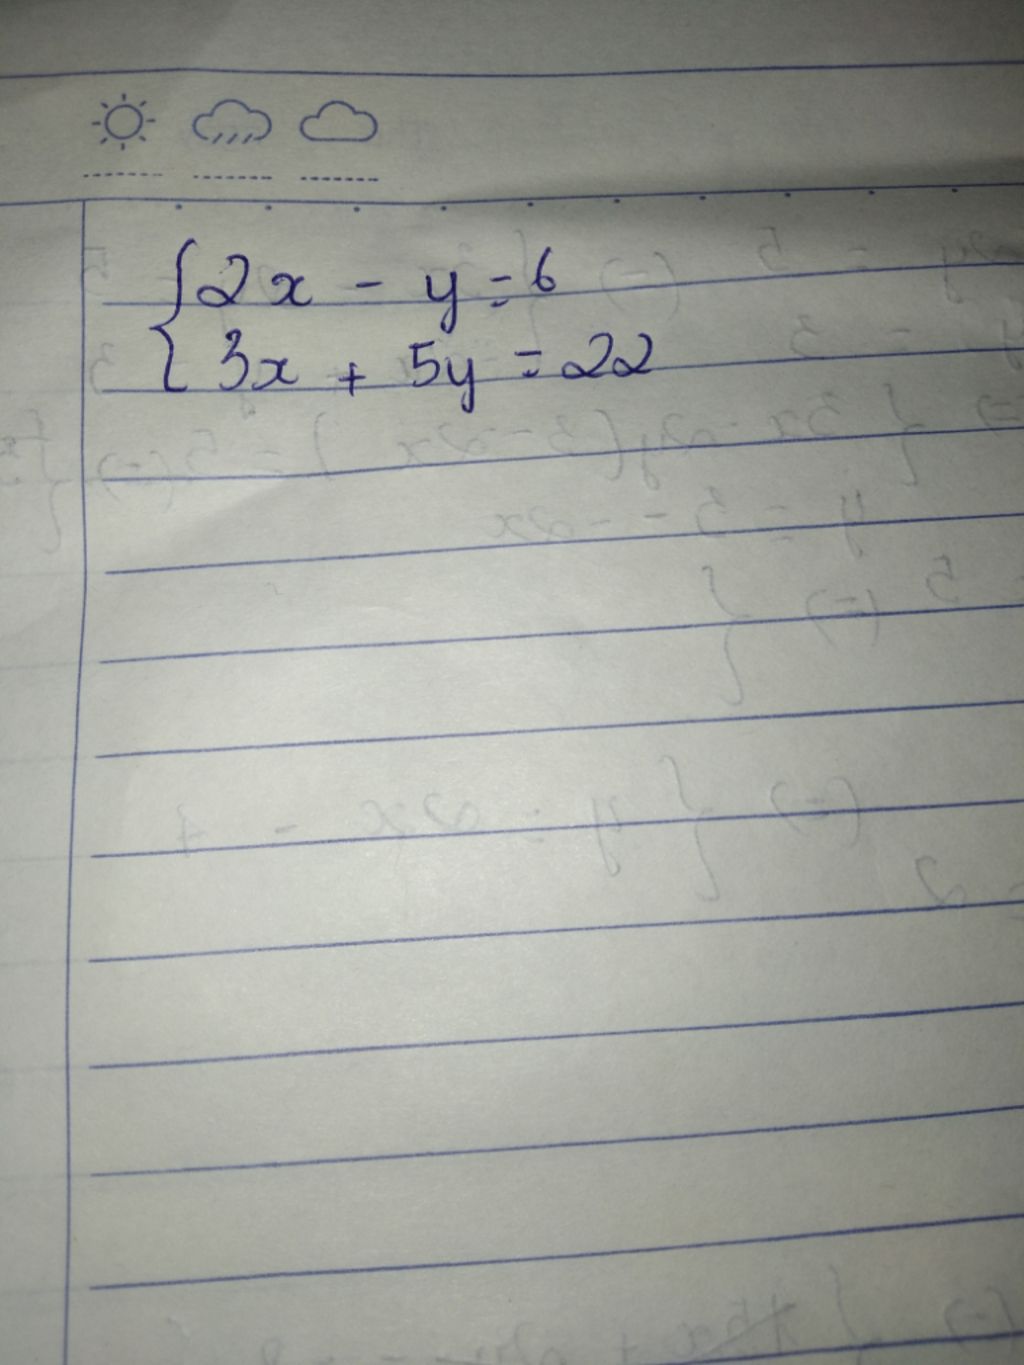 {2x - y = 6
3x + 5y = 22